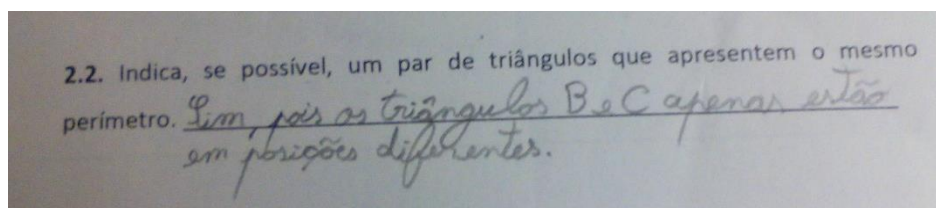 2.2. Indica, se possível, um par de triângulos que apresentem o mesmo
perímetro. Sim, pois os triângulos B e C apenas estão
em posições diferentes.